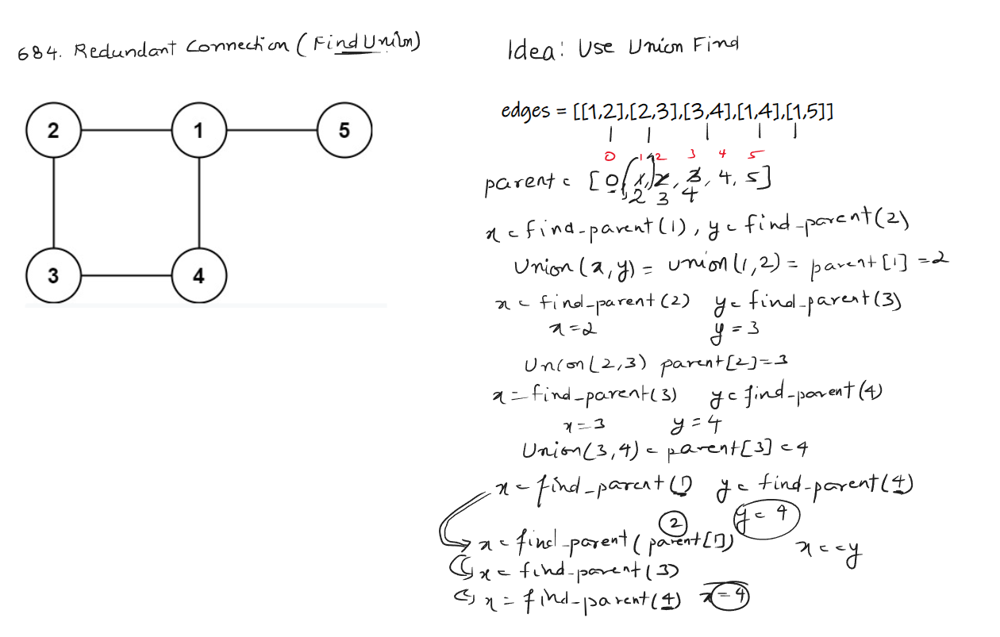 684. Redundant Connection (Find Union)
2
1
5
3
4
Idea: Use Union Find
edges = [[1,2],[2,3],[3,4],[1,4],[1,5]]
0 1 2 3 4 5
parent = [0, 1, 2, 3, 4, 5]
2 3 4
x = find-parent(1), y = find-parent(2)
Union(x,y) = union(1,2) = parent[1] = 2
x = find-parent(2) y = find-parent(3)
x=2 y = 3
Union(2,3) parent[2]=3
x = find-parent(3) y = find-parent(4)
x=3 y = 4
Union(3,4) = parent[3] = 4
x = find-parent(1) y = find-parent(4)
2 y = 4
x = find-parent(parent[1]) x==y
x = find-parent(3)
x = find-parent(4) x=4